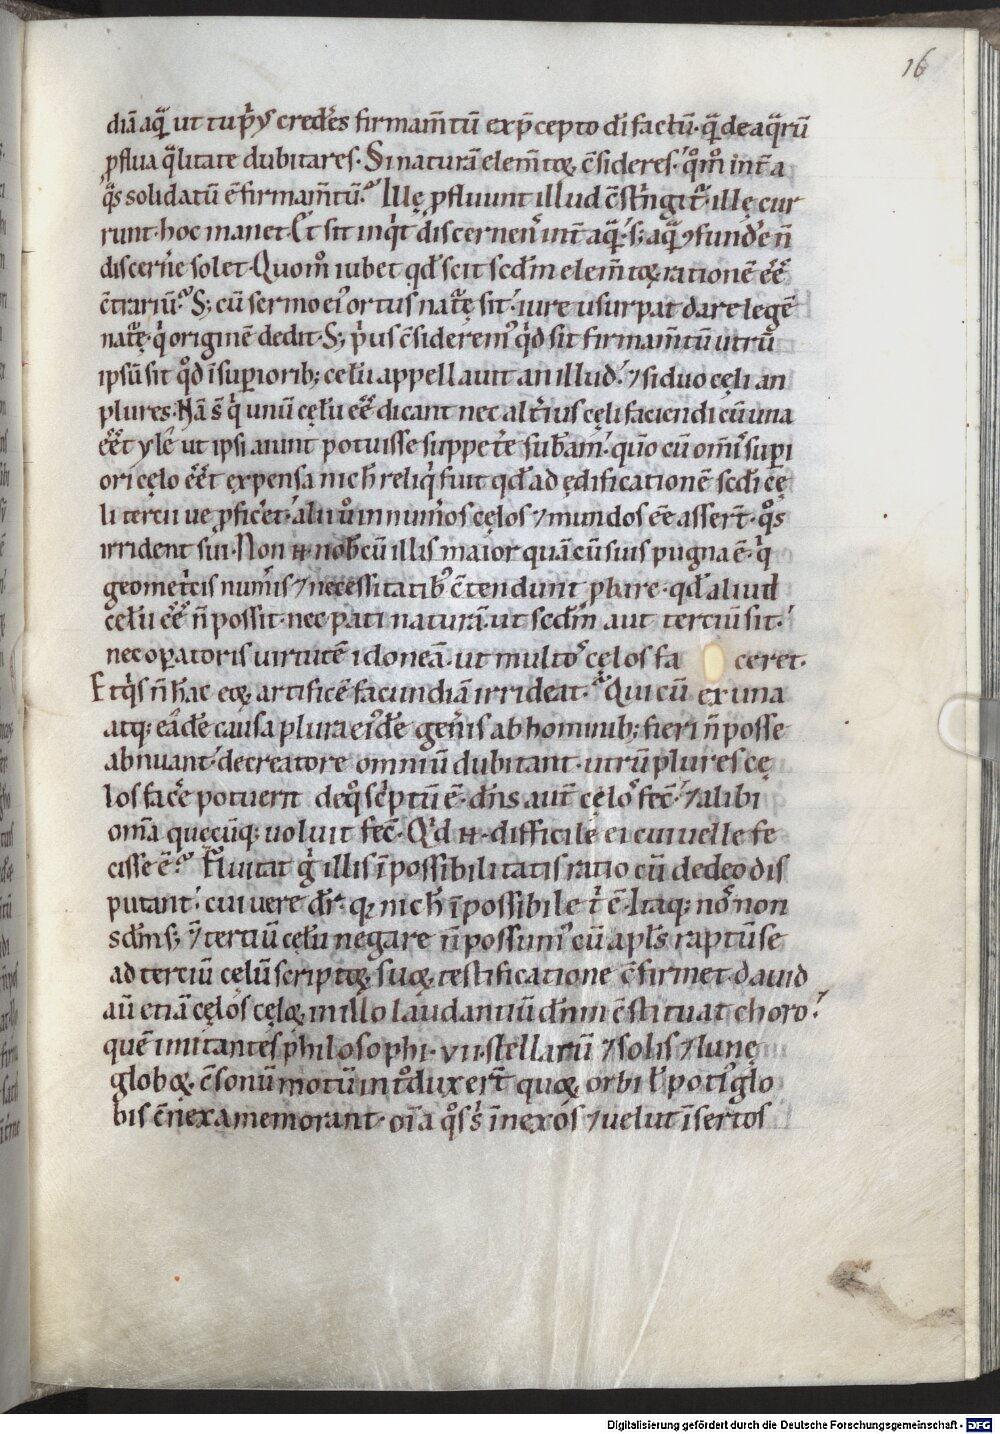 16
diā aq̄ ut tu p̄ꝯ credēs firmam̄tū ex p̄cepto dī factū· q̄ de aq̄rū
ꝓflua q̄litate dubitares· Si naturā elem̄toꝝ c̄sideres· qͦmͦ int̄ a
q̄s solidatū ē firmam̄tū? Illę ꝓfluunt illud c̄st̄ngit᷑· illę cur
runt· hoc manet· Et sit inq̇t discernen̄ int̄ aq̄· s; aq̄ ꝯfundʼe n̄
discernʼe solet· Quomͦ iubet qd̄ scit scd̄m elem̄toꝝ rationē eē
c̄trariū? S; cū sermo eiꝰ ortus nat᷑ę sit· iure usurpat dare legē
nat᷑ę· q̇ originē dedit· S; p̓us c̄sideremꝰ q̇d sit firmam̄tū utrū
ipsū sit qͦd ī superiorib; celū appellauit an illud· ⁊ si duo cęli an
plures· Nā s̄ q̇ unū cęlū eē dicant nec alt̓ius cęli faciendi cū una
eēt ylē ut ipsi aiunt potuisse suppetʼe sub̄am· quo cū om̄i supi
ori cęlo eēt expensa nich̄ reliq̇ fuit qd̄ ad ędificationē scd̄i cę
li tercii ue ꝓficʼet· alii ů innum̓os cęlos ⁊ mundos eē assert̄· qͦs
irrident sui· Non ħ nob̄ cū illis maior quā cū suis pugna ē· q̇
geomet̓cis num̓is ⁊ necessitatibꝰ c̄tendunt ꝓbare· qd̄ aliud
celū eē n̄ possit· nec pati naturā· ut scd̄m aut terciū sit·
nec oꝑatoris uirtutē idoneā· ut multoˢ cęlos fa ceret·
Et q̇s n̄ hāc eoꝝ artificē facundiā irrideat? Qui cū ex una
atq; eādē causa plura eiꝰdē gen̓is ab hominib; fieri n̄ posse
abnuant· de creatore omniū dubitant· utrū plures cę
los facʼe potuerit de qͦ sc̓ptū ē· dn̄s aut̄ cęloˢ fec̄· ⁊ alibi
om̄a quecūq; uoluit fec̄· Q̇d ħ difficile ei cui uelle fe
cisse ē? Nutat g̓ illis īpossibilitatis ratio cū de deo dis
putant· cui uere dr̄· qꝫ nich̄ īpossibile t̓ ē· Itaq; noˢ non
scd̄m s; ⁊ terciū cęlū negare n̄ possumꝰ cū apl̄s raptū se
ad terciū cęlū scriptoꝝ suoꝝ testificatione c̄firmet· dauid
aū etiā cęlos cęloꝝ in illo laudantiū dn̄m c̄stituat choro·
quē imitantes philosophi· vii· stellarū ⁊ solis ⁊ lunę
globoꝝ· c̄sonū motū int̊duxert̄ quoꝝ orbi l̄ potiꝰ glo
bis c̄nexa memorant· oīa qͦs s̓ īnexos ⁊ uelut īsertos
Digitalisierung gefördert durch die Deutsche Forschungsgemeinschaft - DFG